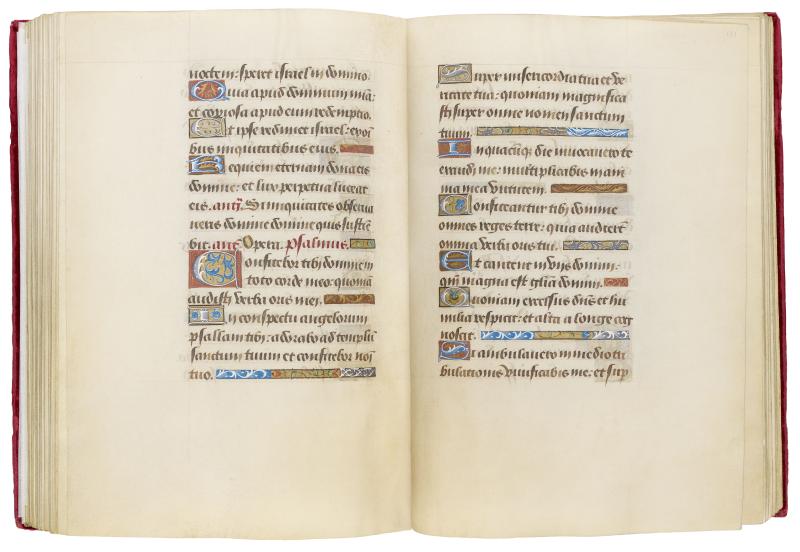 noctem: speret israel in domino.
Quia apud dominum mīa:
et copiosa apud eum redemptio.
Et ipse redimet israel: ex oī
bus iniquitatibus eius.
Requiem eternam dona eis
domine: et lux perpetua luceat
eis. antā. Si iniquitates observa
veris domine domine quis sustiē
bit. antā. Opera. psalmus.
Confitebor tibi domine in
toto corde meo: quoniā
audisti verba oris mei.
In conspectu angelorum
psallam tibi: adorabo ad templū
sanctum tuum et confitebor noī
tuo.
Super misericordia tua et ve
ritate tua: quoniam magnifica
sti super omne nomen sanctum
tuum.
In quacūq; die invocavero te
exaudi me: multiplicabis in ani
ma mea virtutem.
Confiteantur tibi domine
omnes reges terre: quia audierūt
omnia verba oris tui.
Et cantent in viis domini:
qm̄ magna est gl̄ia domini.
Quoniam excelsus dn̄s et hu
milia respicit: et alta a longe cog
noscit.
Si ambulavero in medio tri
bulationis vivificabis me: et sup